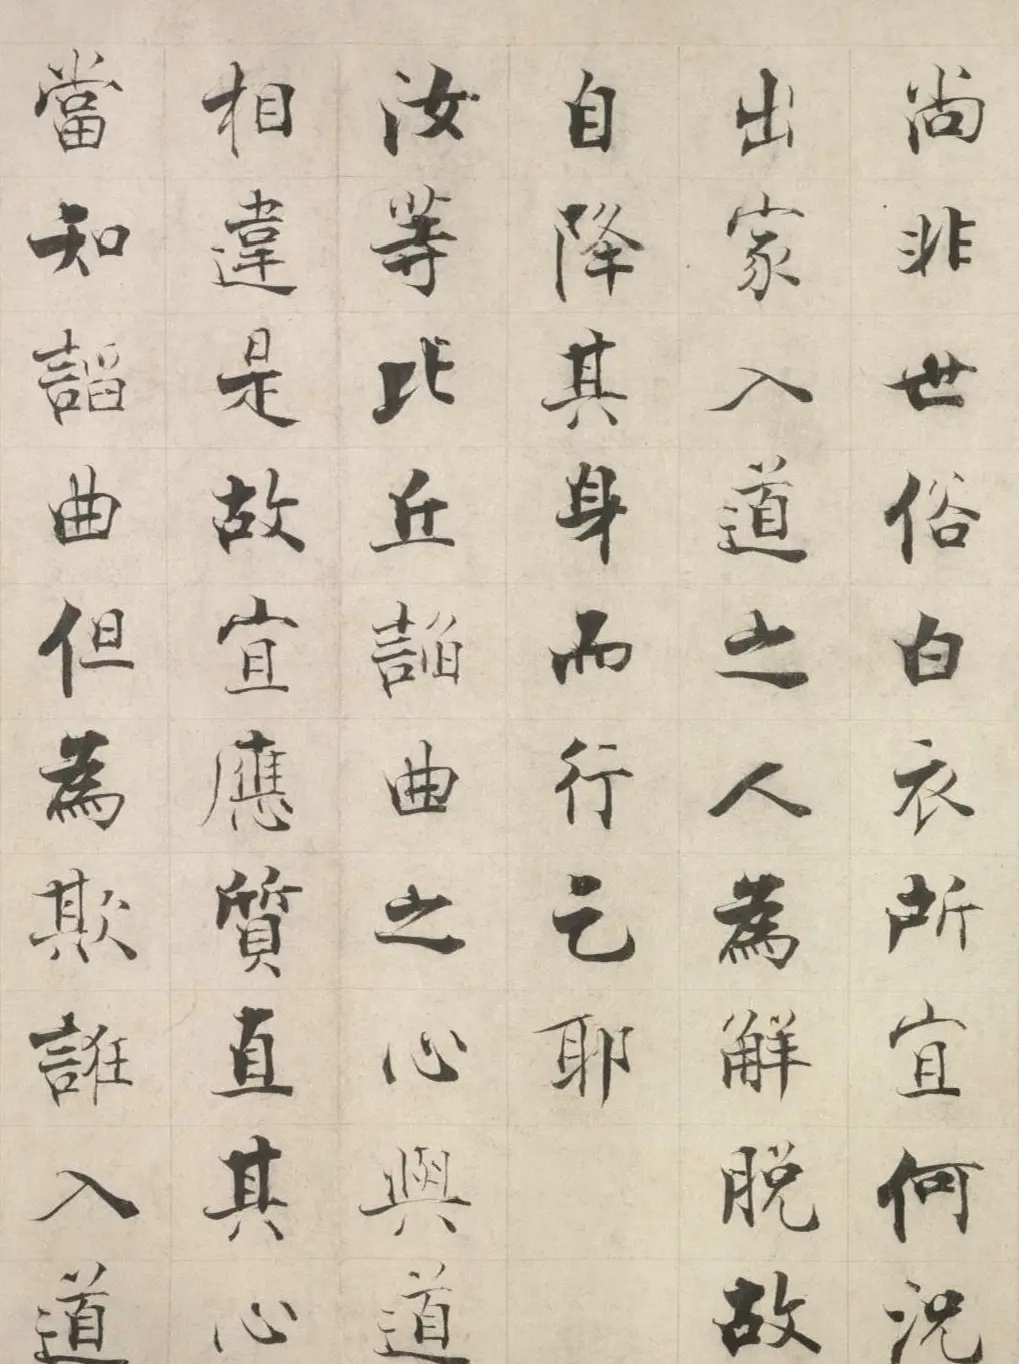 尚非世俗白衣所宜何況
出家入道之人為解脫故
自降其身而行乞耶
汝等比丘諂曲之心與道
相違是故宜應質直其心
當知諂曲但為欺誑入道